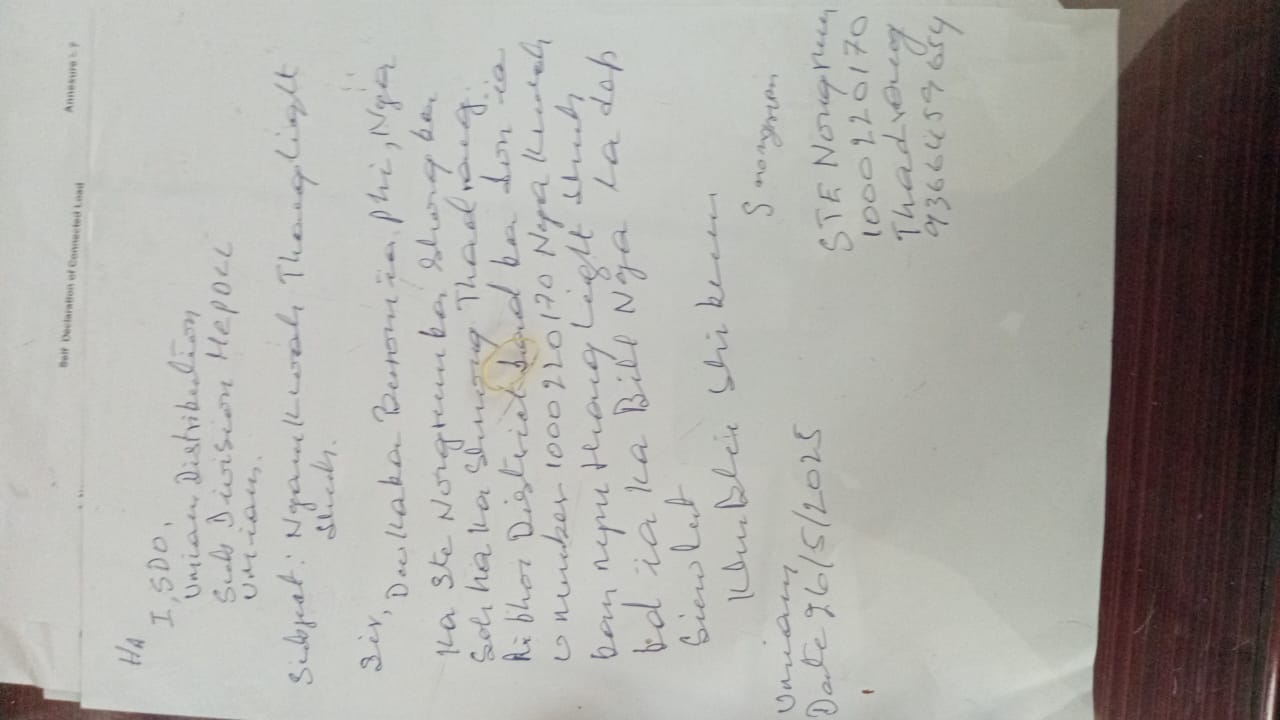 Self Declaration of Connected Load Annexure - 7
HA
I, SDO,
Umiam Distribution
Sub Division MePDCL
Umiam.
Subject: Ngam Kwah Thang light
shuh.
Sir,
Da ka Burom ia phi, Nga
Ka Ste Nongrum ba shong ha
ka shnong Thadnong.
Ri bhoi District bad ba don ia
u number 1000220170 Nga kwah
ban nym thang light shuh
bd ia ka Bill Nga La dep
Khublei shi kun
S nongrum
Umiam
Date 26/5/2025
STE Nongrum
1000220170
Thadnong
9366459654